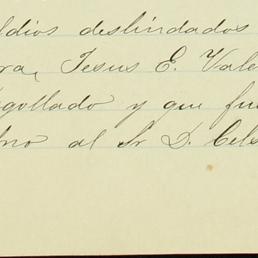 ldios deslindados
ra, Jesus E. Vale
gollado y que fu
no al Sr D. Cels